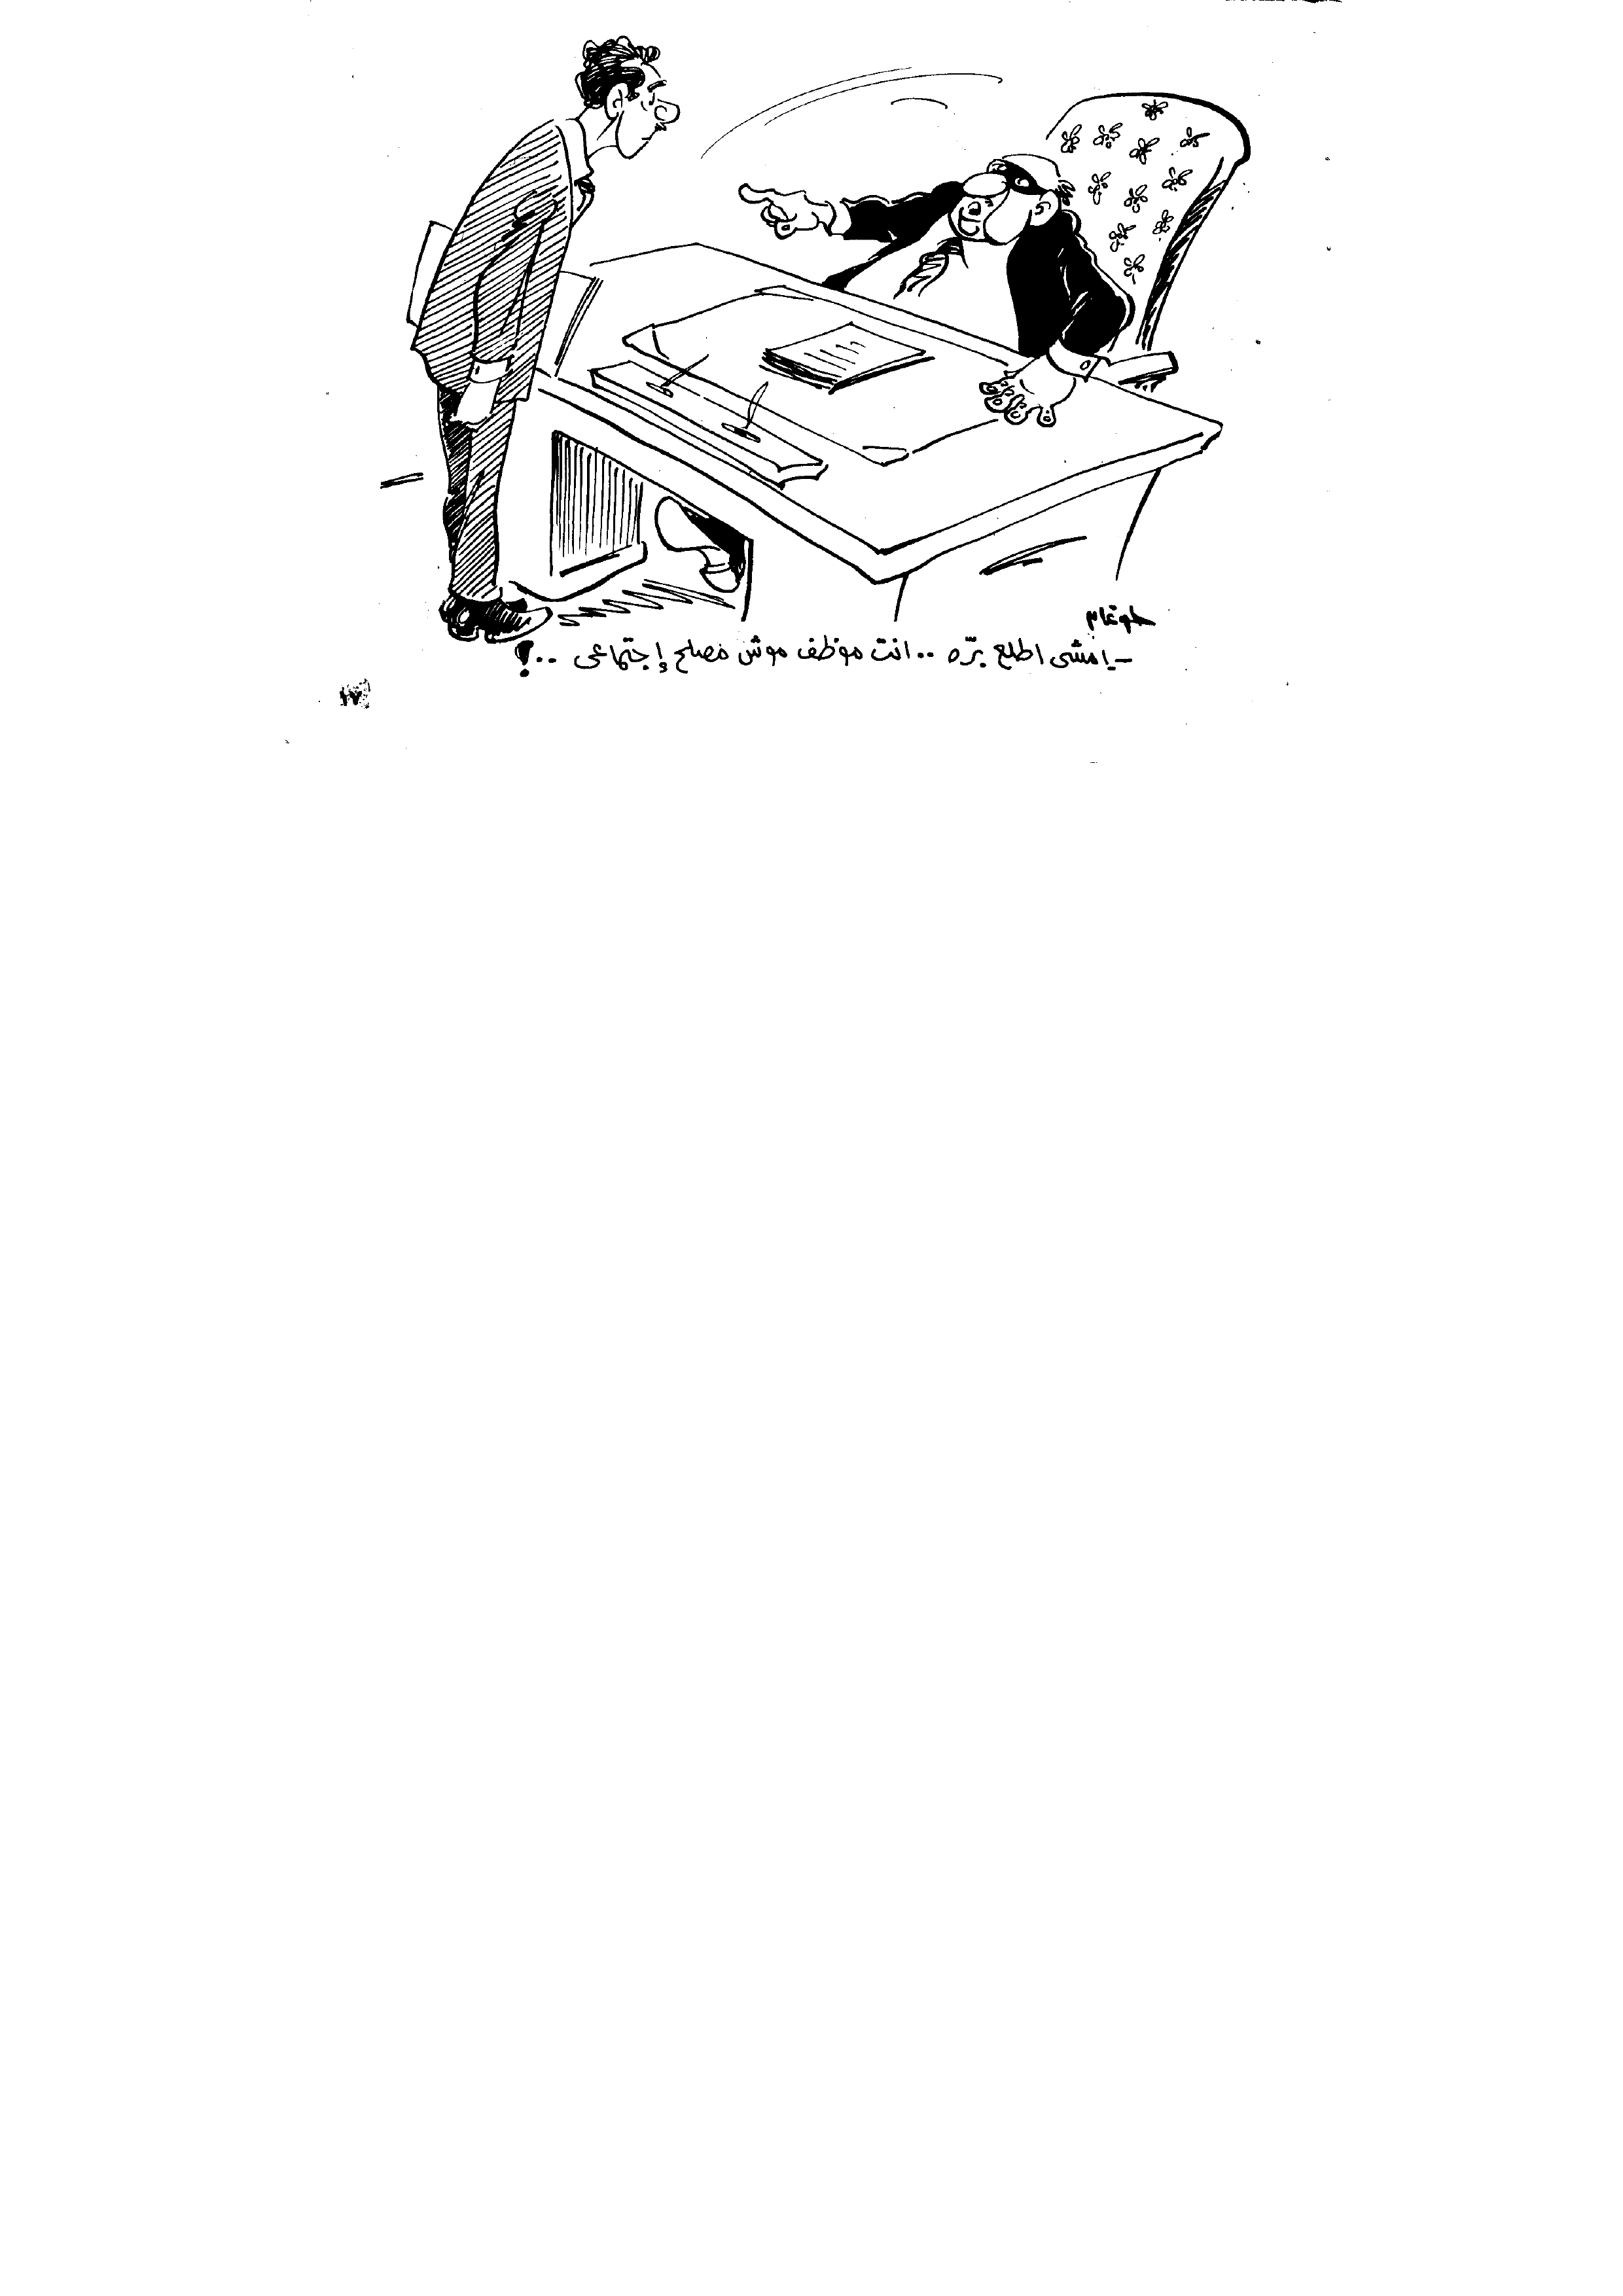 طوغان
– يا مشى اطلع برّه .. انت موظف موش مصلح إجتماعى .. !